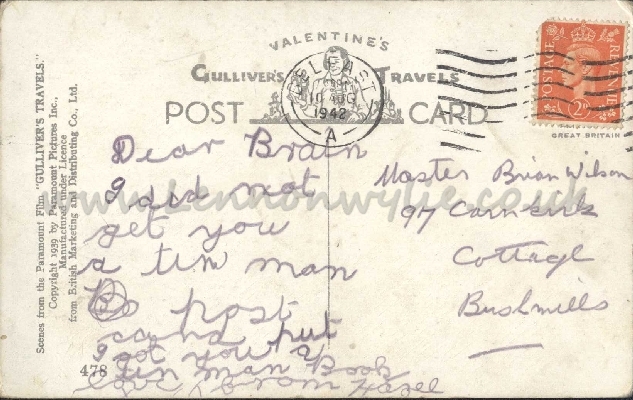 VALENTINE'S
GULLIVER'S TRAVELS
POST CARD
BELFAST
10 AUG
1942
A
POSTAGE REVENUE
2D
GREAT BRITAIN
Scenes from the Paramount Film "GULLIVER'S TRAVELS."
Copyright 1939 by Paramount Pictures Inc.,
Manufactured under Licence
from British Marketing and Distributing Co., Ltd.
www.lennonwylie.co.uk
Dear Brain
I did not
get you
a tin man
post
cand but
I got you a
tin man Book
love from Hazel
478
Master Brian Wilson
97 Carnkirk
Cottage
Bushmills